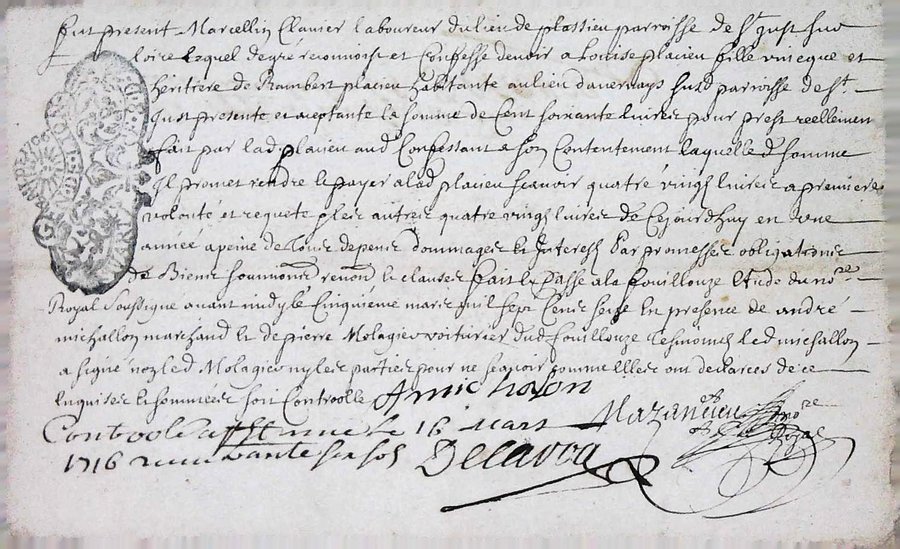 fut present Marcellin Clavier laboureur du lieu de plassieu parroisse de St Just sur
loire lequel degré reconnoist et Confesse devoir a Louise placieu fille unicque et
héritiere de Rambert placieu habitante au lieu davernays susd parroisse de St
Just presente et aceptante la somme de Cent soixante livres pour prest reellement
fait par lad placieu aud Confessant a son Contentement laquelle d somme
Il promet rendre et payer a lad placieu scavoir quatre vingt livres a premiere
volonté et requete et les autres quatre vingt livres de Cejourdhuy en une
année a peine de tous depens dommages et Interests Par promesses obligations
de Biens soumons renons et clauses fait et Passé a la fouillouze Etude du nore
Royal Soussigne avant midy le Cinquième mars mil sept Cens seize En presence de andré
michallon marchand et de pierre Molagier voiturier dud fouillouze tesmoins led michallon
a signé non led Molagier ny les parties pour ne scavoir comme elles ont declarees de ce
Enquises et sommees soit Controolle
A michalon
Mazancieu nore Royal
Controolé a St le 16 mars
1716 sols
Delarva